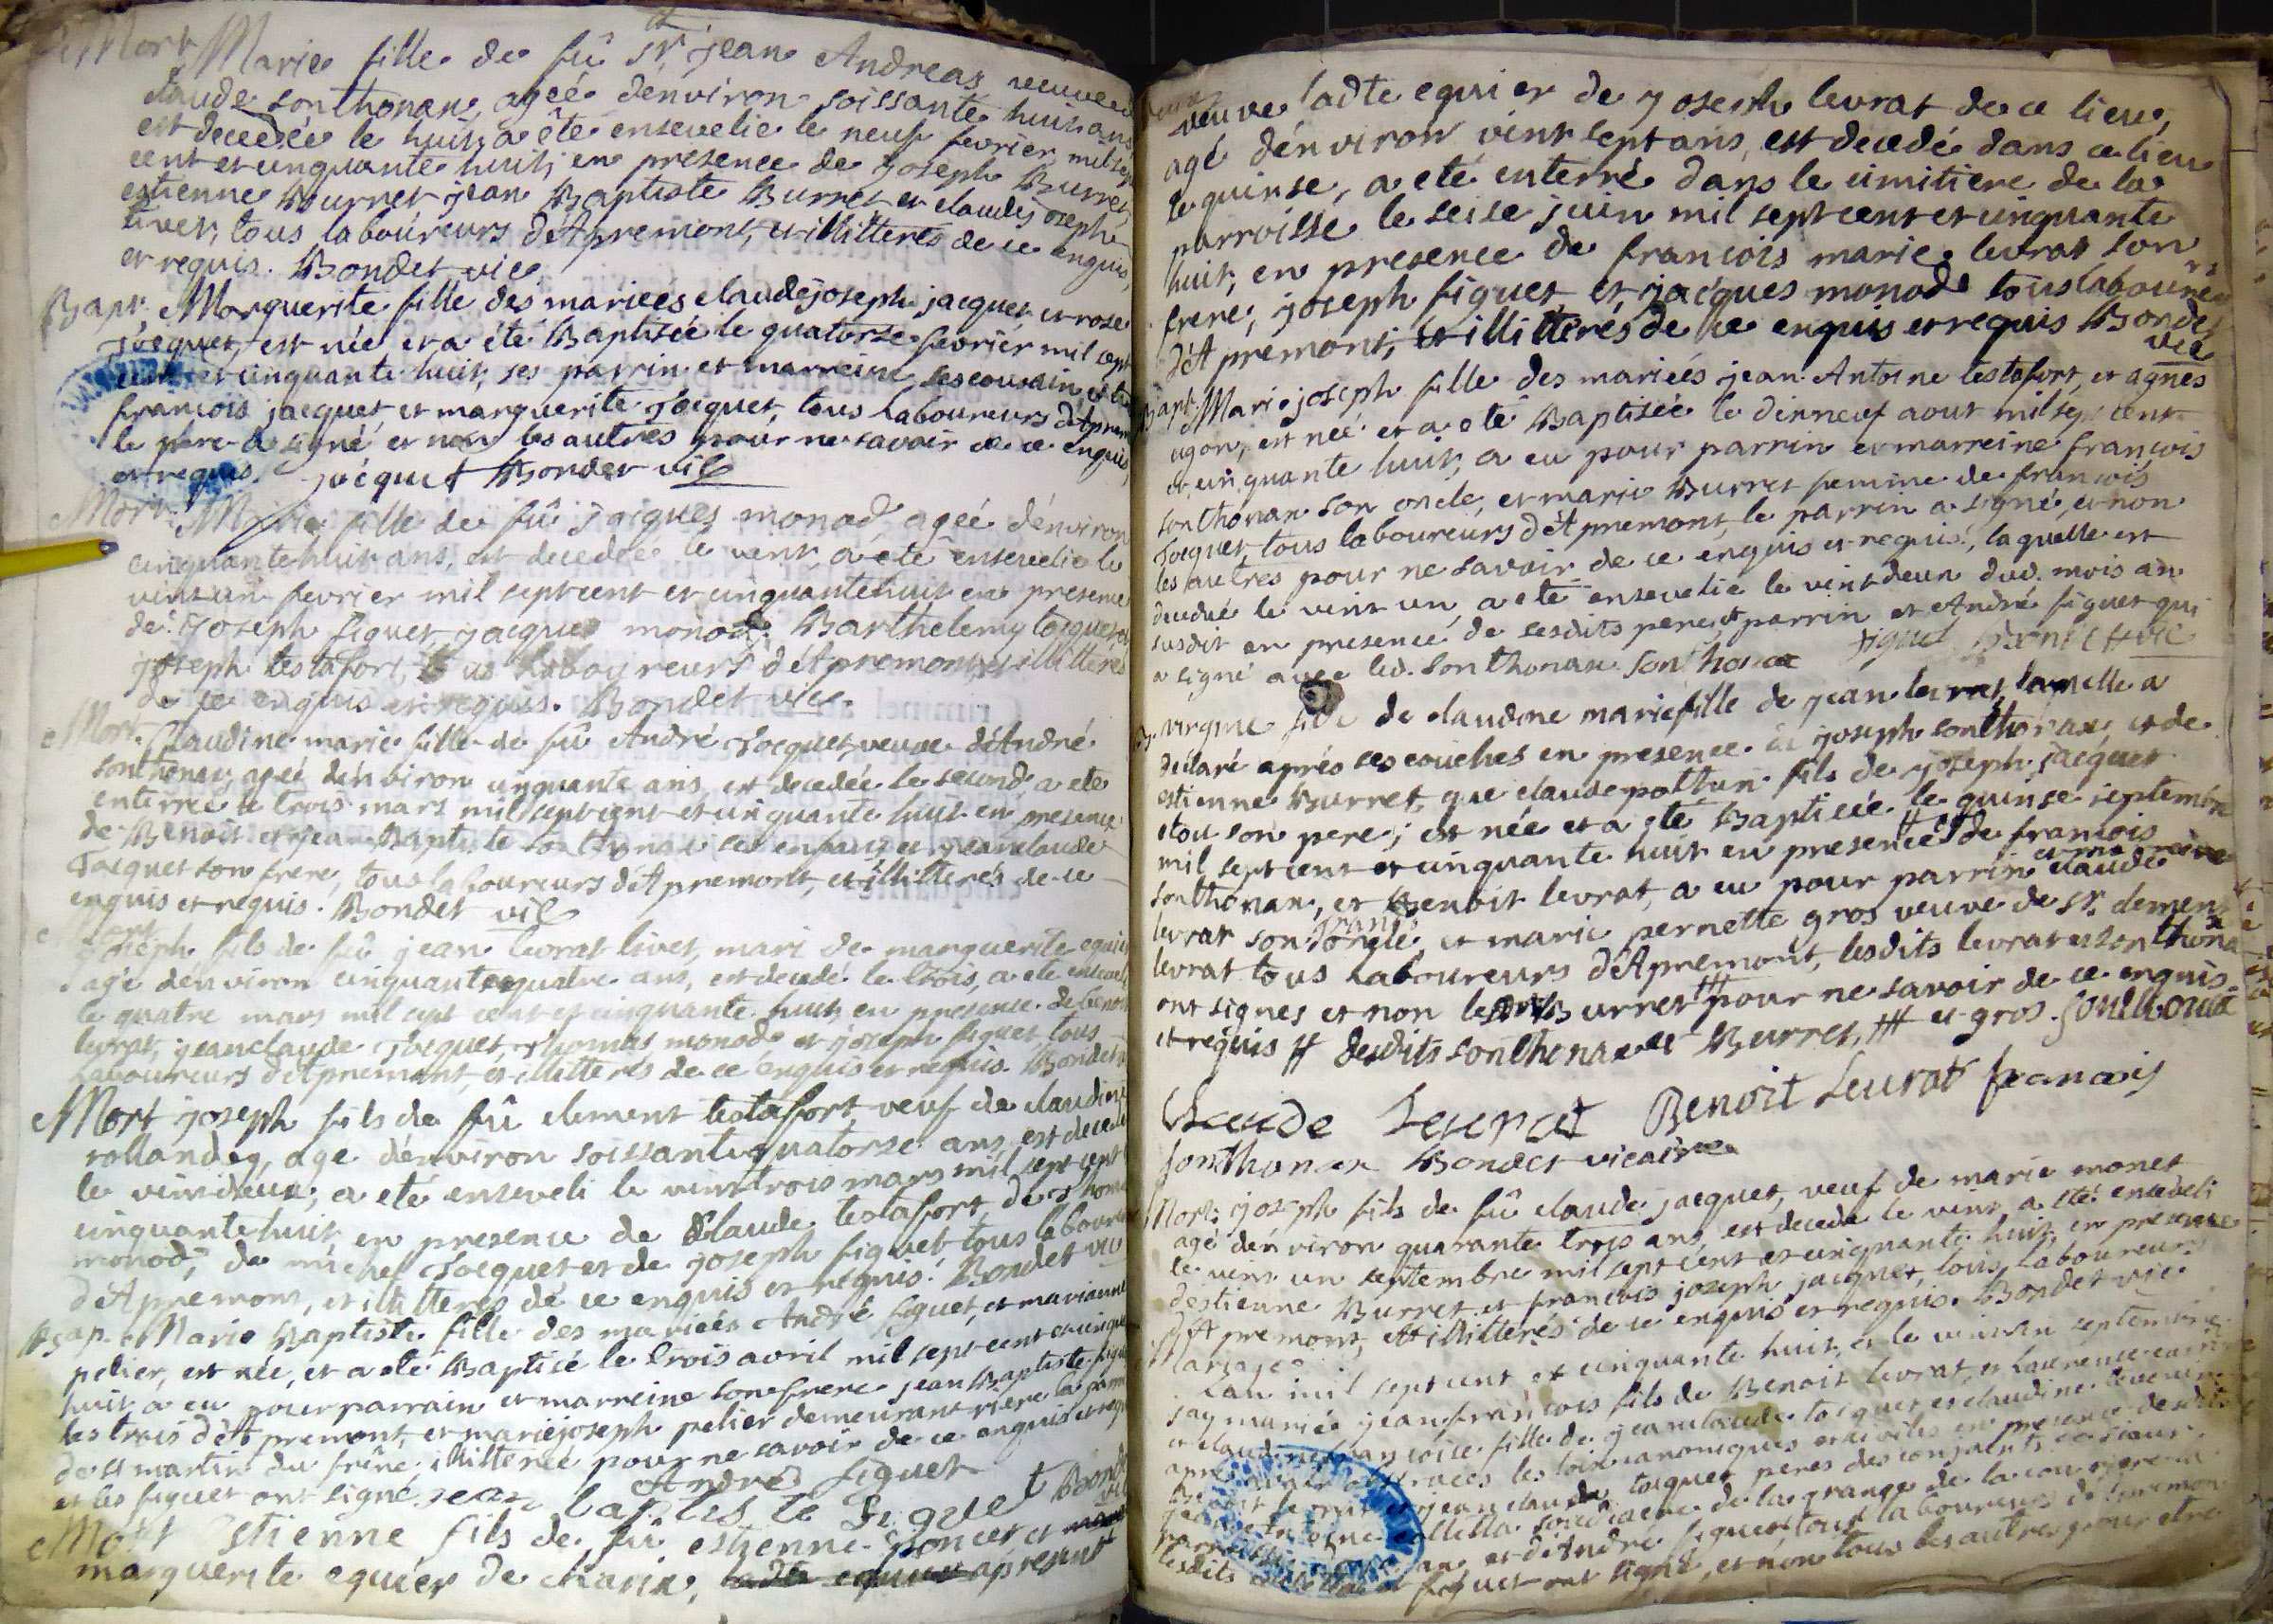 Mort Marie fille de fû Sr. jean Andreas veuve de
claude Sonthonax, agée d'environ soissante huit ans
est decedée le huit, a été ensevelie le neuf fevrier mil sept
cent et cinquante huit, en présence de joseph Burret,
estienne Burret jean Baptiste Burret et claude joseph
livet, tous laboureurs d'Apremont, et illitterés de ce enquis,
et requis. Bondet vic
Bapt. Marguerite fille des mariées claude joseph jacquet et rose
Jacquet, est née et a été Baptisée le quatorse fevrier mil sept
cent et cinquante huit, ses parrin et marreine ses cousain
francois jacquet, et marguerite Jacquet, tous laboureurs d'Aprem
le pere a signé et non les autres pour ne savoir de ce enquis,
et requis. jacquet Bondet vic
Mort. Marie fille de fû jacques monod, agée d'environ
cinquante huit ans, est decedée le vint, a eté ensevelie le
vint un fevrier mil sept cent et cinquante huit en presence
de joseph figuet, jacques monod, Barthelemy Jacquet, et
joseph testafort, tous laboureurs d'Apremont, et illitterés
de ce enquis et requis. Bondet vic.
Mort. Claudine marie fille de fû André Jacquet, veuve d'André
sonthonax, agée d'environ cinquante ans, est decedée le second, a eté
enterrée le trois mars mil sept cent et cinquante huit en presence
de Benoit et jean Baptiste sonthonax ses enfans et jean claude
Jacquet son frere, tous laboureurs d'Apremont, et illitterés de ce
enquis et requis. Bondet vic
Mort
joseph fils de fû jean levrat livet, mari de marguerite equier
agé d'environ cinquante quatre ans, est decedé le trois, a eté enseveli
le quatre mars mil sept cent et cinquante huit, en presence de Benoit
levrat, jean claude Jacquet, Thomas monod et joseph figuet, tous
laboureurs d'Apremont, et illitterés de ce enquis et requis. Bondet
Mort joseph fils de fû clement testafort veuf de claudine
rollandez, agé d'environ soissante quatorse ans, est decedé
le vint deux, a eté enseveli le vint trois mars mil sept cent
cinquante huit, en presence de Claude testafort, de Thomas
monod, de michel Jacquet et de joseph figuet tous laboureurs
d'Apremont, et illitterés de ce enquis et requis. Bondet vic
Bap. Marie Baptiste fille des mariées André figuet, et marianne
pelier, est née, et a eté Baptisé le trois avril mil sept cent et cinquante
huit, a eu pour parrain et marreine son frere jean Baptiste figuet
les trois d'Apremont, et marie joseph pelier demeurant riere la parroisse
de St martin du frêne, illitterée pour ne savoir de ce enquis et requis
et les figuet ont signé. André figuet
jean baptis te Figuet Bondet
vic
Mort Estienne fils de fû estienne poncet et
marguerite equier de charix, ladte equier apresent
veuve ladte equier de joseph levrat de ce lieu,
agé d'environ vint sept ans, est decedé dans ce lieu
le quinse, a eté enterré dans le cimitiere de la
parroisse le seise juin mil sept cent et cinquante
huit, en presence de francois marie levrat son
frere, joseph figuet, et jacques monod tous laboureurs
d'Apremont, et illitterés de ce enquis et requis Bondet
vic
Bapt. Marie joseph fille des mariées jean Antoine testafort, et agnes
ugon, est née et a eté Baptisée le dixneuf aout mil sept cent
et cinquante huit, a eu pour parrin et marreine francois
sonthonax son oncle, et marie Burret femme de francois
Jacquet, tous laboureurs d'Apremont, le parrin a signé, et non
les autres pour ne savoir de ce enquis et requis, laquelle est
decedée le vint un, a eté ensevelie le vint deux dud. mois an
susdit en presence de sesdits pere, et parrin et André figuet qui
a signé avec led. sonthonax Sonthonax figuet Bondet vic
virgine fille de claudine marie fille de jean levrat, laquelle a
déclaré aprés ses couches en presence de joseph sonthonax, et de
estienne Burret, que claude fils de joseph jacquet
etoit son pere; est née et a eté Baptisée le quinse septembre
mil sept cent et cinquante huit en presence # de francois
sonthonax, et Benoit levrat, a eu pour parrin et marreine claude
levrat son grand oncle, et marie pernette gros veuve de Sr. clement
levrat tous laboureurs d'Apremont, lesdits levrat et sonthonax
ont signés et non Burret ### pour ne savoir de ce enquis
et requis # desdits sonthonax et Burret, ### et gros. Sonthonax
Claude Levrat Benoit Levrat francois
sonthonax Bondet vicaire
Mort. joseph fils de fû claude jacquet, veuf de marie monet
agé d'environ quarante trois ans, est decedé le vint, a eté enseveli
le vint un septembre mil sept cent et cinquante huit, en présence
d'estienne Burret et francois joseph jacquet, tous laboureurs
d'Apremont, et illitterés de ce enquis et requis. Bondet vic
Mariage
Lan mil sept cent et cinquante huit, et le vint septembre
jay mariée jean francois fils de Benoit levrat, et
et claudine francoise fille de jean claude Jacquet et claudine
apres avoir les loix canoniques et civiles en presence desdits
Benoit levrat et jean claude Jacquet peres des conjoints
de la grange de la
et d'André figuet tous laboureurs d'Apremont
lesdits et figuet ont signé, et non tous les autres pour etre